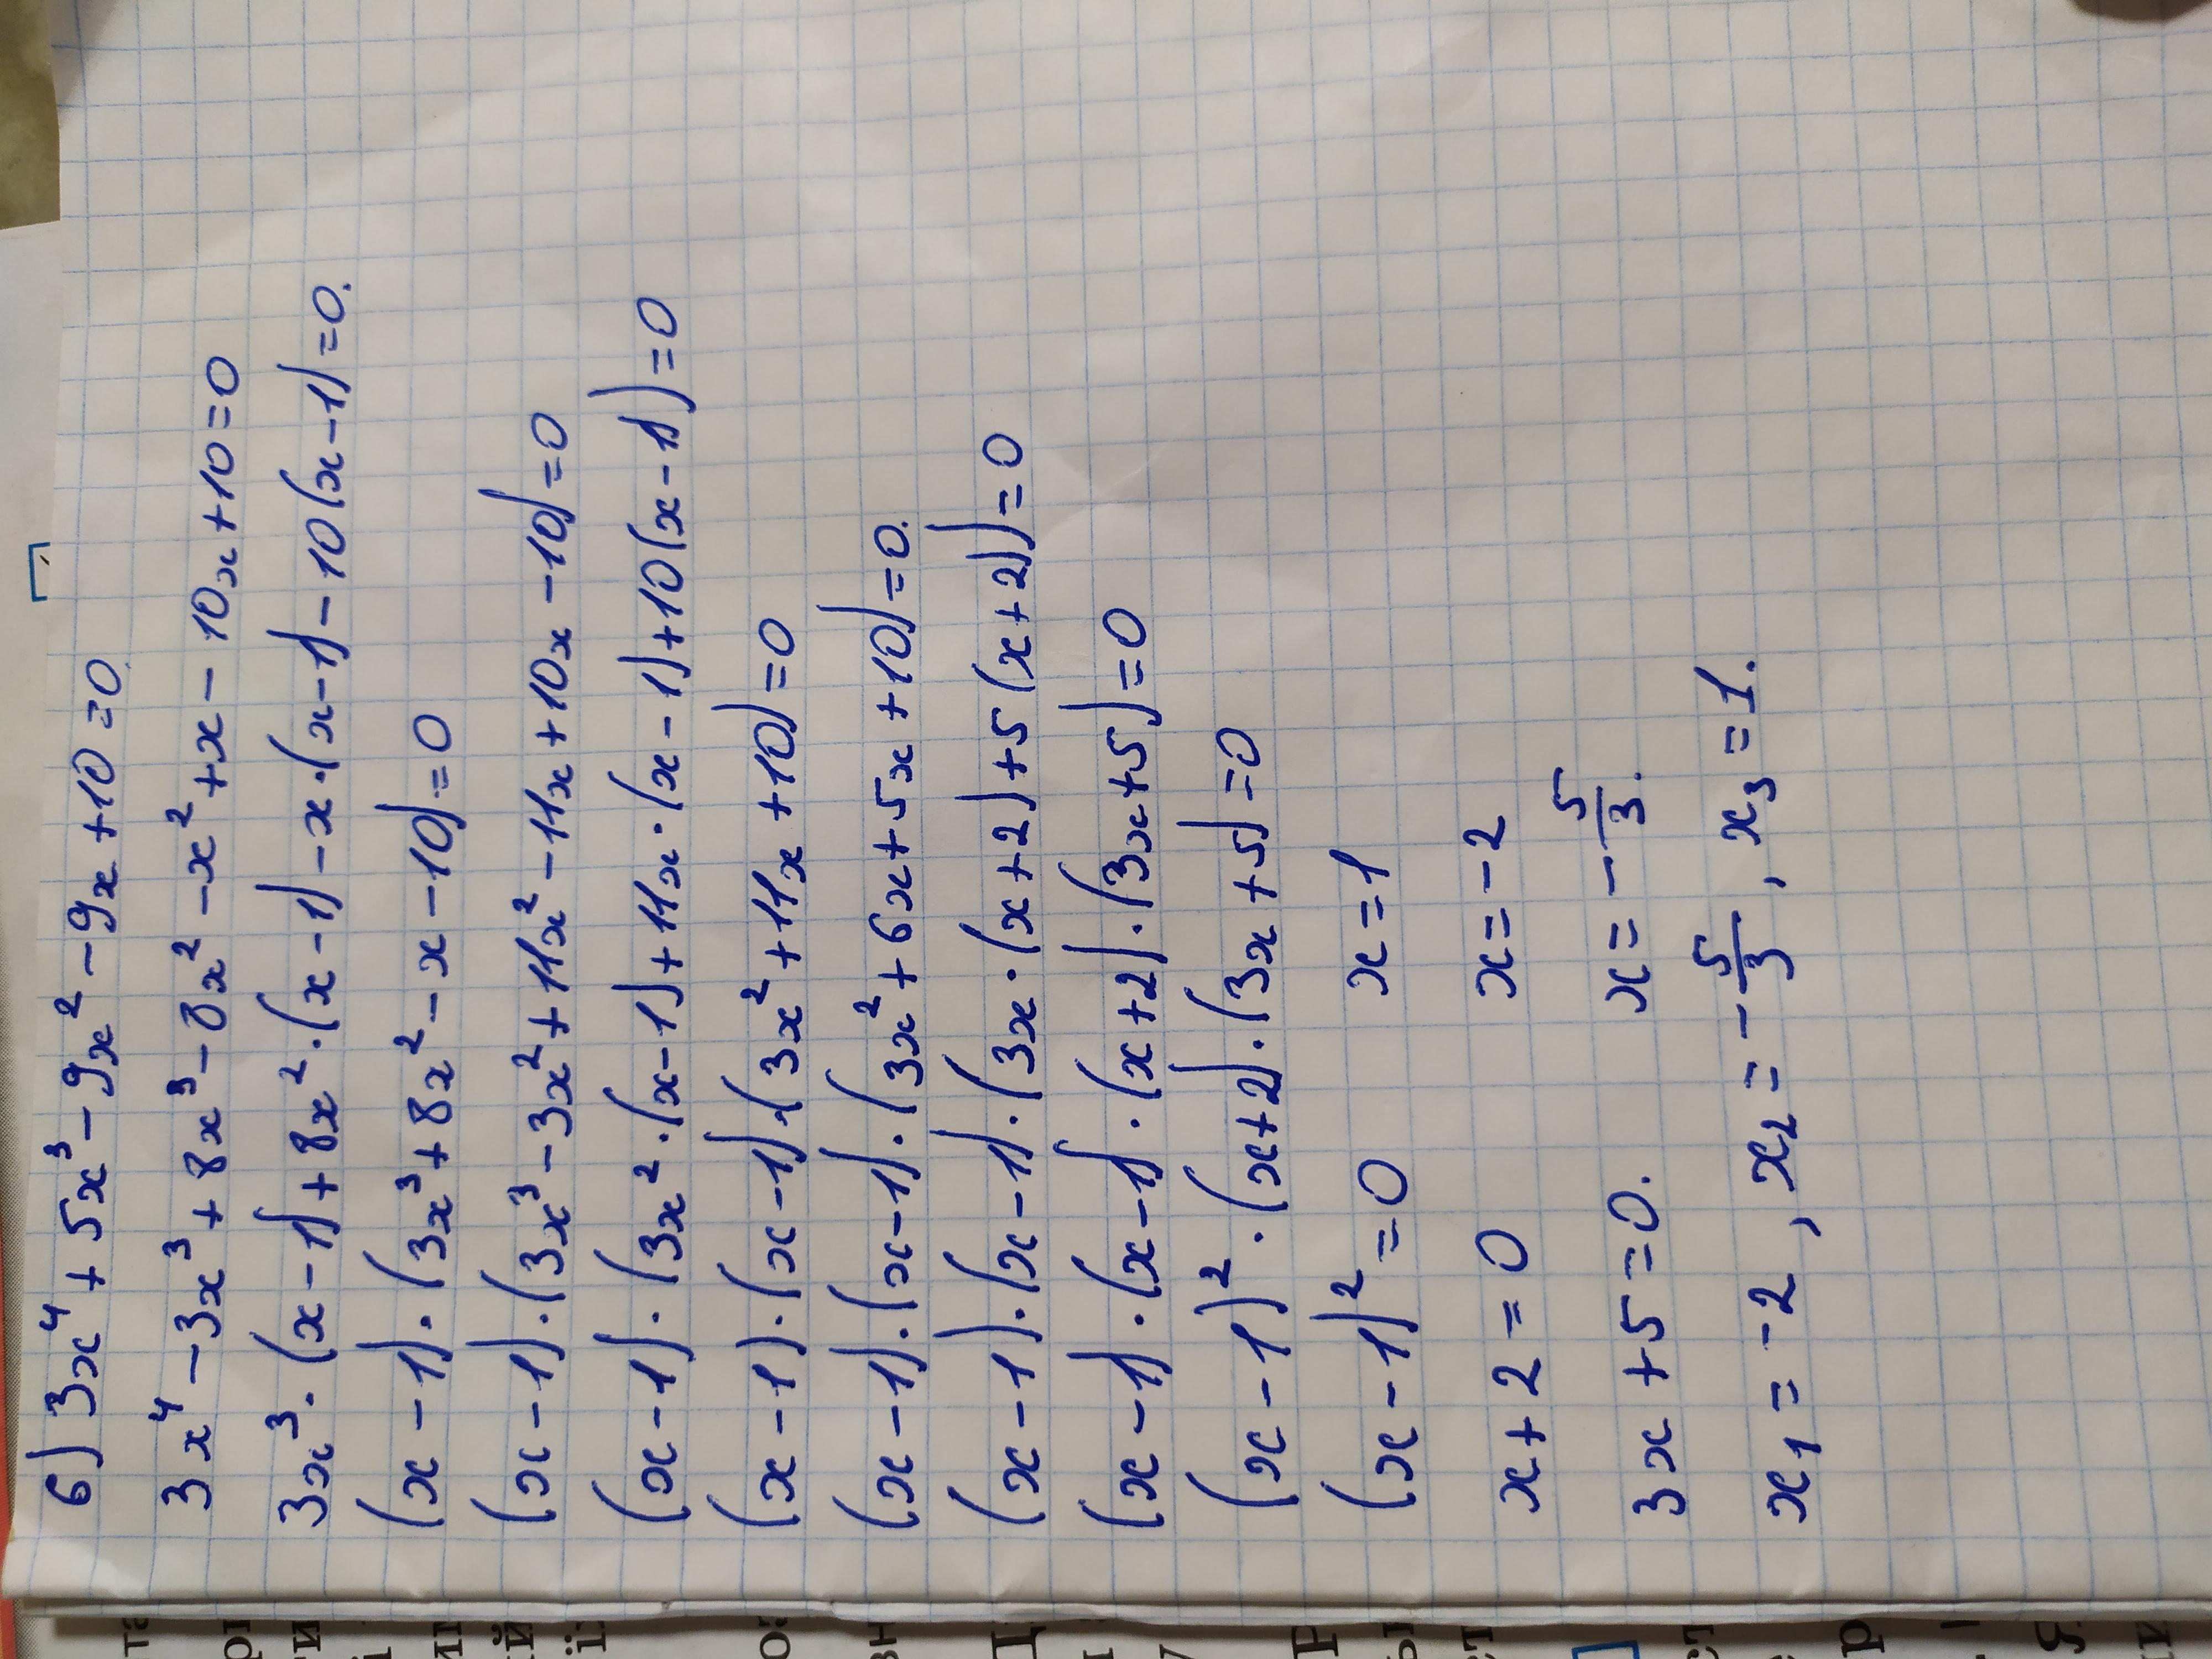 6) 3x⁴+5x³-9x²-9x+10=0.
3x⁴-3x³+8x³-8x²-x²+x-10x+10=0
3x³·(x-1)+8x²·(x-1)-x·(x-1)-10(x-1)=0.
(x-1)·(3x³+8x²-x-10)=0
(x-1)·(3x³-3x²+11x²-11x+10x-10)=0
(x-1)·(3x²·(x-1)+11x·(x-1)+10(x-1))=0
(x-1)·(x-1)·(3x²+11x+10)=0
(x-1)·(x-1)·(3x²+6x+5x+10)=0.
(x-1)·(x-1)·(3x·(x+2)+5(x+2))=0
(x-1)·(x-1)·(x+2)·(3x+5)=0
(x-1)²·(x+2)·(3x+5)=0
(x-1)²=0 x=1
x+2=0 x=-2
3x+5=0. x=-5/3.
x₁=-2, x₂=-5/3, x₃=1.